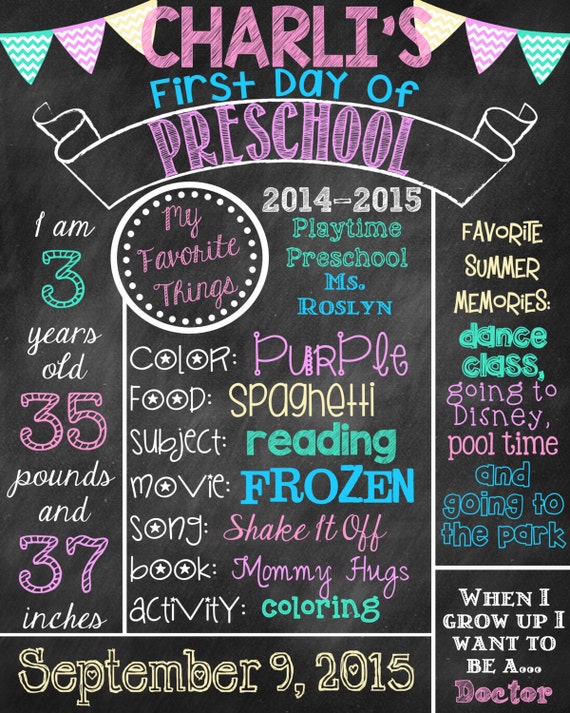 CHARLI'S
First Day Of
PRESCHOOL
I am
3
years
old
35
pounds
and
37
inches
My
Favorite
Things
2014-2015
Playtime
Preschool
Ms.
Roslyn
COLOR: PURPLE
FOOD: SPAGHETTI
SUBJECT: reading
MOVIE: FROZEN
SONG: Shake It Off
BOOK: Mommy Hugs
ACTIVITY: coloring
FAVORITE
SUMMER
MEMORIES:
dance
class,
going to
Disney,
pool time
and
going to
the park
WHEN I
GROW UP I
WANT TO
BE A...
Doctor
September 9, 2015